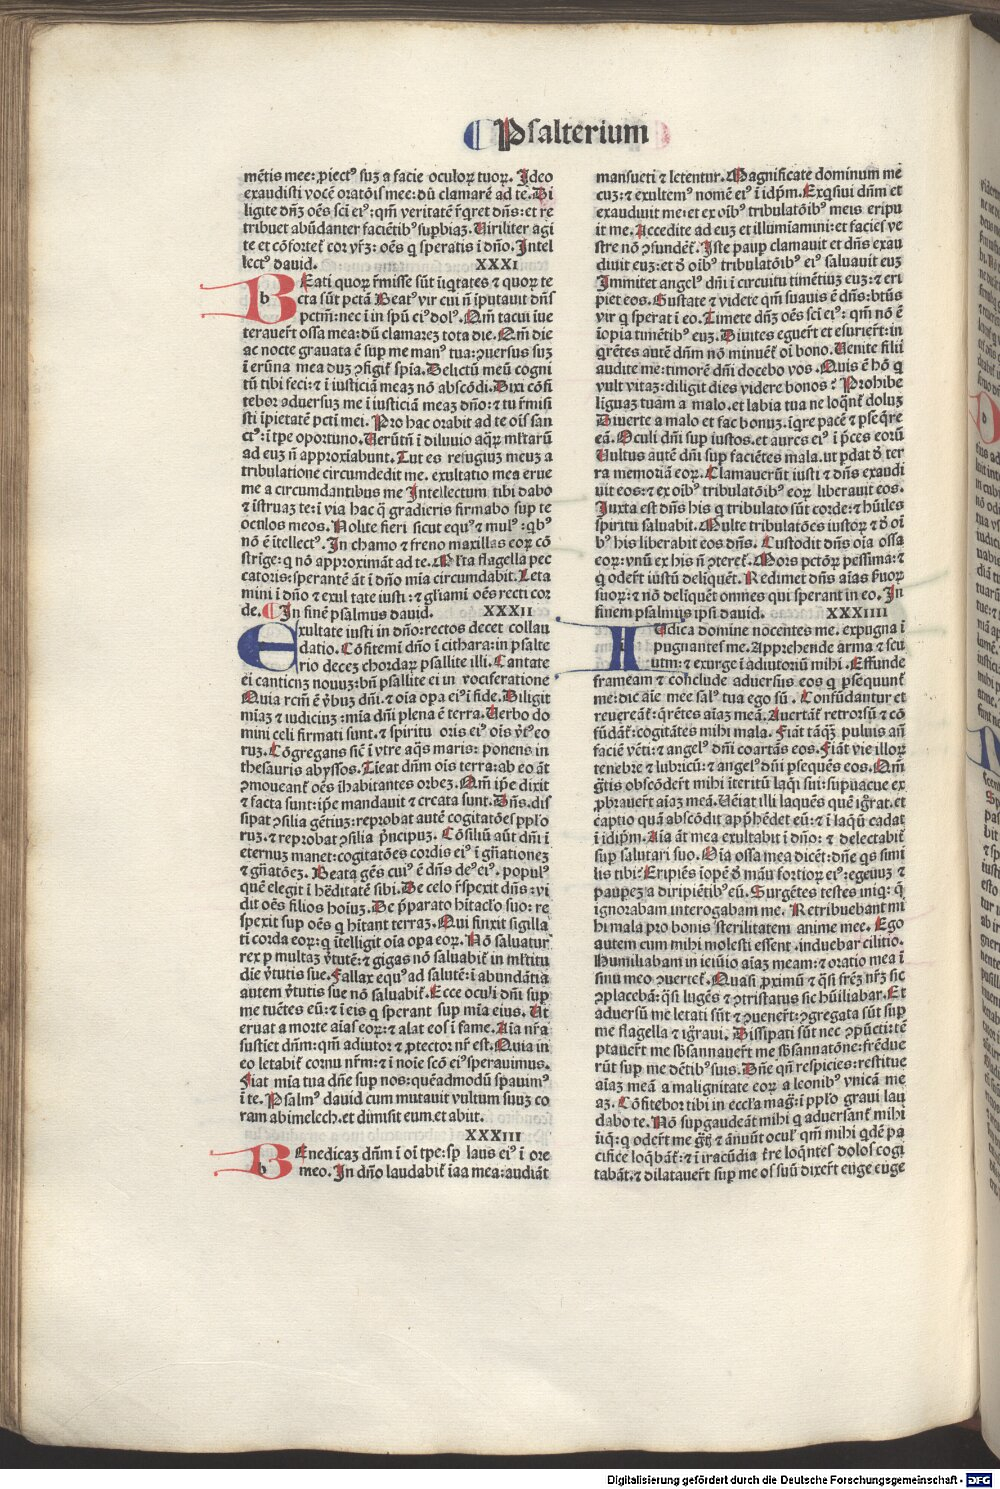 Psalterium
mētis mee: ꝓiect⁹ suꝫ a facie oculoꝝ tuoꝝ. Ideo
exaudisti vocē oratōis mee: dū clamarē ad te. Di
ligite dn̄ꝫ oēs sc̄i ei⁹: qm̄ veritatē r̄q̄ret dn̄s: et re
tribuet abūdanter faciētib⁹ suꝑbiaꝫ. Viriliter agi
te et cōfortet̄ cor vr̄ꝫ: oēs q̄ speratis ī dn̄o. Intel
lect⁹ dauid. XXXI
BEati quoꝝ r̄misse sūt iīq̄tates ⁊ quoꝝ te
b cta sūt pctā Beat⁹ vir cui n̄ īputauit dn̄s
pctm̄: nec ī in spū ei⁹ dol⁹. Qm̄ tacui iue
terauer̄t ossa mea: dū clamareꝫ tota die. Qm̄ die
ac nocte grauata ē sup me man⁹ tua: ↄuersus suꝫ
ī erūna mea duꝫ ↄfigit̄ spīa. Delictū meū cogni
tū tibi feci: ⁊ ī iusticiā meaꝫ nō abscōdi. Dixi cōfi
tebor aduersuꝫ me ī iusticiā meaꝫ dn̄o: ⁊ tu r̄misi
sti īpietatē pcti mei. Pro hac orabit ad te oīs san
ct⁹: ī tpe oportuno. Verūtn̄ ī diluuio aqꝝ ml̄tarū
ad euꝫ n̄ approxīabunt. Tut es refugiuꝫ meuꝫ a
tribulatione circumdedit me. exultatio mea erue
me a circumdantibus me Intellectum tibi dabo
⁊ īstruaꝫ te: ī via hac q̄ gradieris firmabo sup te
oculos meos. Nolite fieri sicut equ⁹ ⁊ mul⁹: qb⁹
nō ē ītellect⁹. In chamo ⁊ freno maxillas eoꝝ cō
strīge: q̄ nō approximāt ad te. Ml̄ta flagella pec
catoris: sperantē āt ī dn̄o mīa circumdabit. Leta
mini ī dn̄o ⁊ exul tate iusti: ⁊ gl̄iami oēs recti cor
de. In finē psalmus dauid. XXXII
Exultate iusti in dn̄o: rectos decet collau
datio. Cōfitemī dn̄o ī cithara: in psalte
rio deceꝫ chordaꝝ psallite illi. Cantate
ei canticꝫ nouuꝫ: bn̄ psallite ei in vociferatione
Quia rcm̄ ē v̄buꝫ dn̄i. ⁊ oīa opa ei⁹ ī fide. Diligit
mīaꝫ ⁊ iudiciuꝫ: mīa dn̄i plena ē terra. Verbo do
mini celi firmati sunt. ⁊ spiritu oris ei⁹ oīs v̄t⁹ eo
ruꝫ. Cōgregans sic̄ ī vtre aq̄s maris: ponens in
thesauris abyssos. Tieat dn̄m oīs terra: ab eo āt
ↄmoueant̄ oēs īhabitantes orbeꝫ. Qm̄ ip̄e dixit
⁊ facta sunt: ip̄e mandauit ⁊ creata sunt. Dn̄s. dis
sipat ↄsilia gētiuꝫ: reprobat autē cogitatōes pplo
ruꝫ: ⁊ reprobat ↄsilia p̄ncipuꝫ. Cōsiliū aūt dn̄i ī
eternuꝫ manet: cogitatōes cordis ei⁹ ī gn̄ationeꝫ
⁊ gn̄atōeꝫ. Beata gēs cui⁹ ē dn̄s de⁹ ei⁹. popul⁹
quē elegit ī hēditatē sibi. De celo r̄spexit dn̄s: vi
dit oēs filios hoīuꝫ. De p̄parato hītac̄lo suo: re
spexit sup oēs q̄ hītant terraꝫ. Qui finxit sigilla
ti corda eoꝝ: q̄ ītelligit oīa opa eoꝝ. Nō saluatur
rex ꝑ multaꝫ v̄tutē: ⁊ gigas nō saluabit̄ in ml̄titu
die v̄tutis sue. Fallax equ⁹ ad salutē: ī abundātia
autem v̄tutis sue nō saluabit̄. Ecce oculi dn̄i sup
me tuētes eū: ⁊ ī eis q̄ sperant sup mīa eius. Ut
eruat a morte aīas eoꝝ: ⁊ alat eos ī fame. Aīa nr̄a
sustīet dn̄m: qm̄ adiutor ⁊ ꝓtector nr̄ est. Quia in
eo letabit̄ cornu nr̄m: ⁊ ī noīe scō ei⁹ sperauimus.
Fiat mīa tua dn̄e sup nos: quēadmodū spauim⁹
ī te. Psalm⁹ dauid cum mutauit vultum suuꝫ co
ram abimelech. et dimisit eum. et abiit.
XXXIII
BEnedicaꝫ dn̄m ī oī tpe: sp̄ laus ei⁹ ī ore
b meo. In dn̄o laudabit̄ īaa mea: audiāt
mansueti ⁊ letentur. Magnificate dominum me
cuꝫ: ⁊ exultem⁹ nomē ei⁹ ī idp̄m. Exq̄siui dn̄m et
exaudiuit me: et ex oīb⁹ tribulatōib⁹ meis eripu
it me. Accedite ad euꝫ et illumiamini: et facies ve
stre nō ↄfundēt̄. Iste paup clamauit et dn̄s exau
diuit euꝫ: et d̄ oīb⁹ tribulatōib⁹ ei⁹ saluauit euꝫ
Immitet angel⁹ dn̄i ī circuitu timētiuꝫ euꝫ: ⁊ eri
piet eos. Gustate ⁊ videte qm̄ suauis ē dn̄s: bt̄us
vir q̄ sperat ī eo. Timete dn̄ꝫ oēs sc̄i ei⁹: qm̄ nō ē
īopia timētib⁹ euꝫ. Diuites eguer̄t ⁊ esurier̄t: in
qr̄ētes autē dn̄m nō minuēt̄ oī bono. Venite filii
audite me: timorē dn̄i docebo vos. Quis ē hō q̄
vult vitaꝫ: diligit dies videre bonos? Prohibe
liguaꝫ tuam a malo. et labia tua ne loq̄nt̄ doluꝫ
Diuerte a malo et fac bonuꝫ. īqre pacē ⁊ ꝑseq̄re
eā. Oculi dn̄i sup iustos. et aures ei⁹ ī p̄ces eorū
Vultus autē dn̄i sup faciētes mala. ut ꝑdat d̄ ter
ra memoriā eoꝝ. Clamauerūt iusti ⁊ dn̄s exaudi
uit eos: ⁊ ex oīb⁹ tribulatōib⁹ eoꝝ liberauit eos.
Iuxta est dn̄s his q̄ tribulato sūt corde: ⁊ hūiles
spiritu saluabit. Multe tribulatōes iustoꝝ ⁊ d̄ oī
b⁹ his liberabit eos dn̄s. Custodit dn̄s oīa ossa
eoꝝ: vnū ex his n̄ ↄteret̄. Mors pctōꝝ pessima: ⁊
q̄ oder̄t iustū deliquēt. Redimet dn̄s aīas ẜuoꝝ
suoꝝ: ⁊ nō deliquēt omnes qui sperant in eo. In
finem psalmus ipsi dauid. XXXIIII
IUdica domine nocētes me. expugna ī
pugnantes me. Apprehende arma ⁊ scu
utm: ⁊ exurge ī adiutoriū mihi. Effunde
frameam ⁊ cōclude aduersus eos q̄ ꝑsequunt̄
me: dic aīe mee sal⁹ tua ego sū. Confūdantur et
reuereāt̄: qr̄ētes aīaꝫ meā. Auertāt̄ retrorsū ⁊ cō
fūdāt̄: cogitātes mihi mala. Fiāt tāqꝫ puluis an̄
faciē vēti: ⁊ angel⁹ dn̄i coartās eos. Fiat vie illoꝝ
tenebre ⁊ lubricū: ⁊ angel⁹ dn̄i ꝑsequēs eos. Qm̄
gr̄tis abscōder̄t mihi īteritū laq̄i sui: supuacue ex
ꝓbrauer̄t aīaꝫ meā. Uēiat illi laquēs quē igr̄at. et
captio quā abscōdit app̄hēdet eū: ⁊ ī laq̄ū cadat
ī idip̄m. Aīa āt mea exultabit ī dn̄o: ⁊ delectabit̄
sup salutari suo. Oīa ossa mea dicēt: dn̄e qs simi
lis tibi? Eripiēs īopē d̄ māu fortioꝝ ei⁹: egenuꝫ ⁊
pauꝑeꝫ a diripiētib⁹ eū. Surgētes testes iniq: q̄
ignorabam interogabam me. Retribuebant mi
hi mala pro bonis: sterilitatem anime mee. Ego
autem cum mihi molesti essent. induebar cilitio.
Humiliabam in ieiūio aīaꝫ meam: ⁊ oratio mea ī
sinu meo ↄuertet̄. Quasi ꝓximū ⁊ q̄si fr̄eꝫ nr̄ꝫ sic
ↄplacebā: q̄si lugēs ⁊ ↄtristatus sic hūiliabar. Et
aduersū me letati sūt ⁊ ↄuener̄t: ↄgregata sūt sup
me flagella ⁊ igr̄aui. Dissipati sūt nec ↄpūcti: tē
ptauer̄t me sb̄sannauer̄t me sb̄sannatōne: frēdue
rūt sup me dētib⁹ suis. Dn̄e qn̄ respicies: restitue
aīaꝫ meā a malignitate eoꝝ a leonib⁹ vnicā me
aꝫ. Cōfitebor tibi in ecc̄la maḡ: ī pplo graui lau
dabo te. Nō supgaudeāt mihi q̄ aduersant̄ mihi
īiq: q̄ oder̄t me gr̄ꝭ ⁊ ānuūt ocul⁹ qm̄ mihi qdē pa
cifice loq̄bāt̄: ⁊ ī iracūdia tr̄e loq̄ntes dolos cogi
tabāt. ⁊ dilatauer̄t sup me os suū dixer̄t euge euge
Digitalisierung gefördert durch die Deutsche Forschungsgemeinschaft - DFG